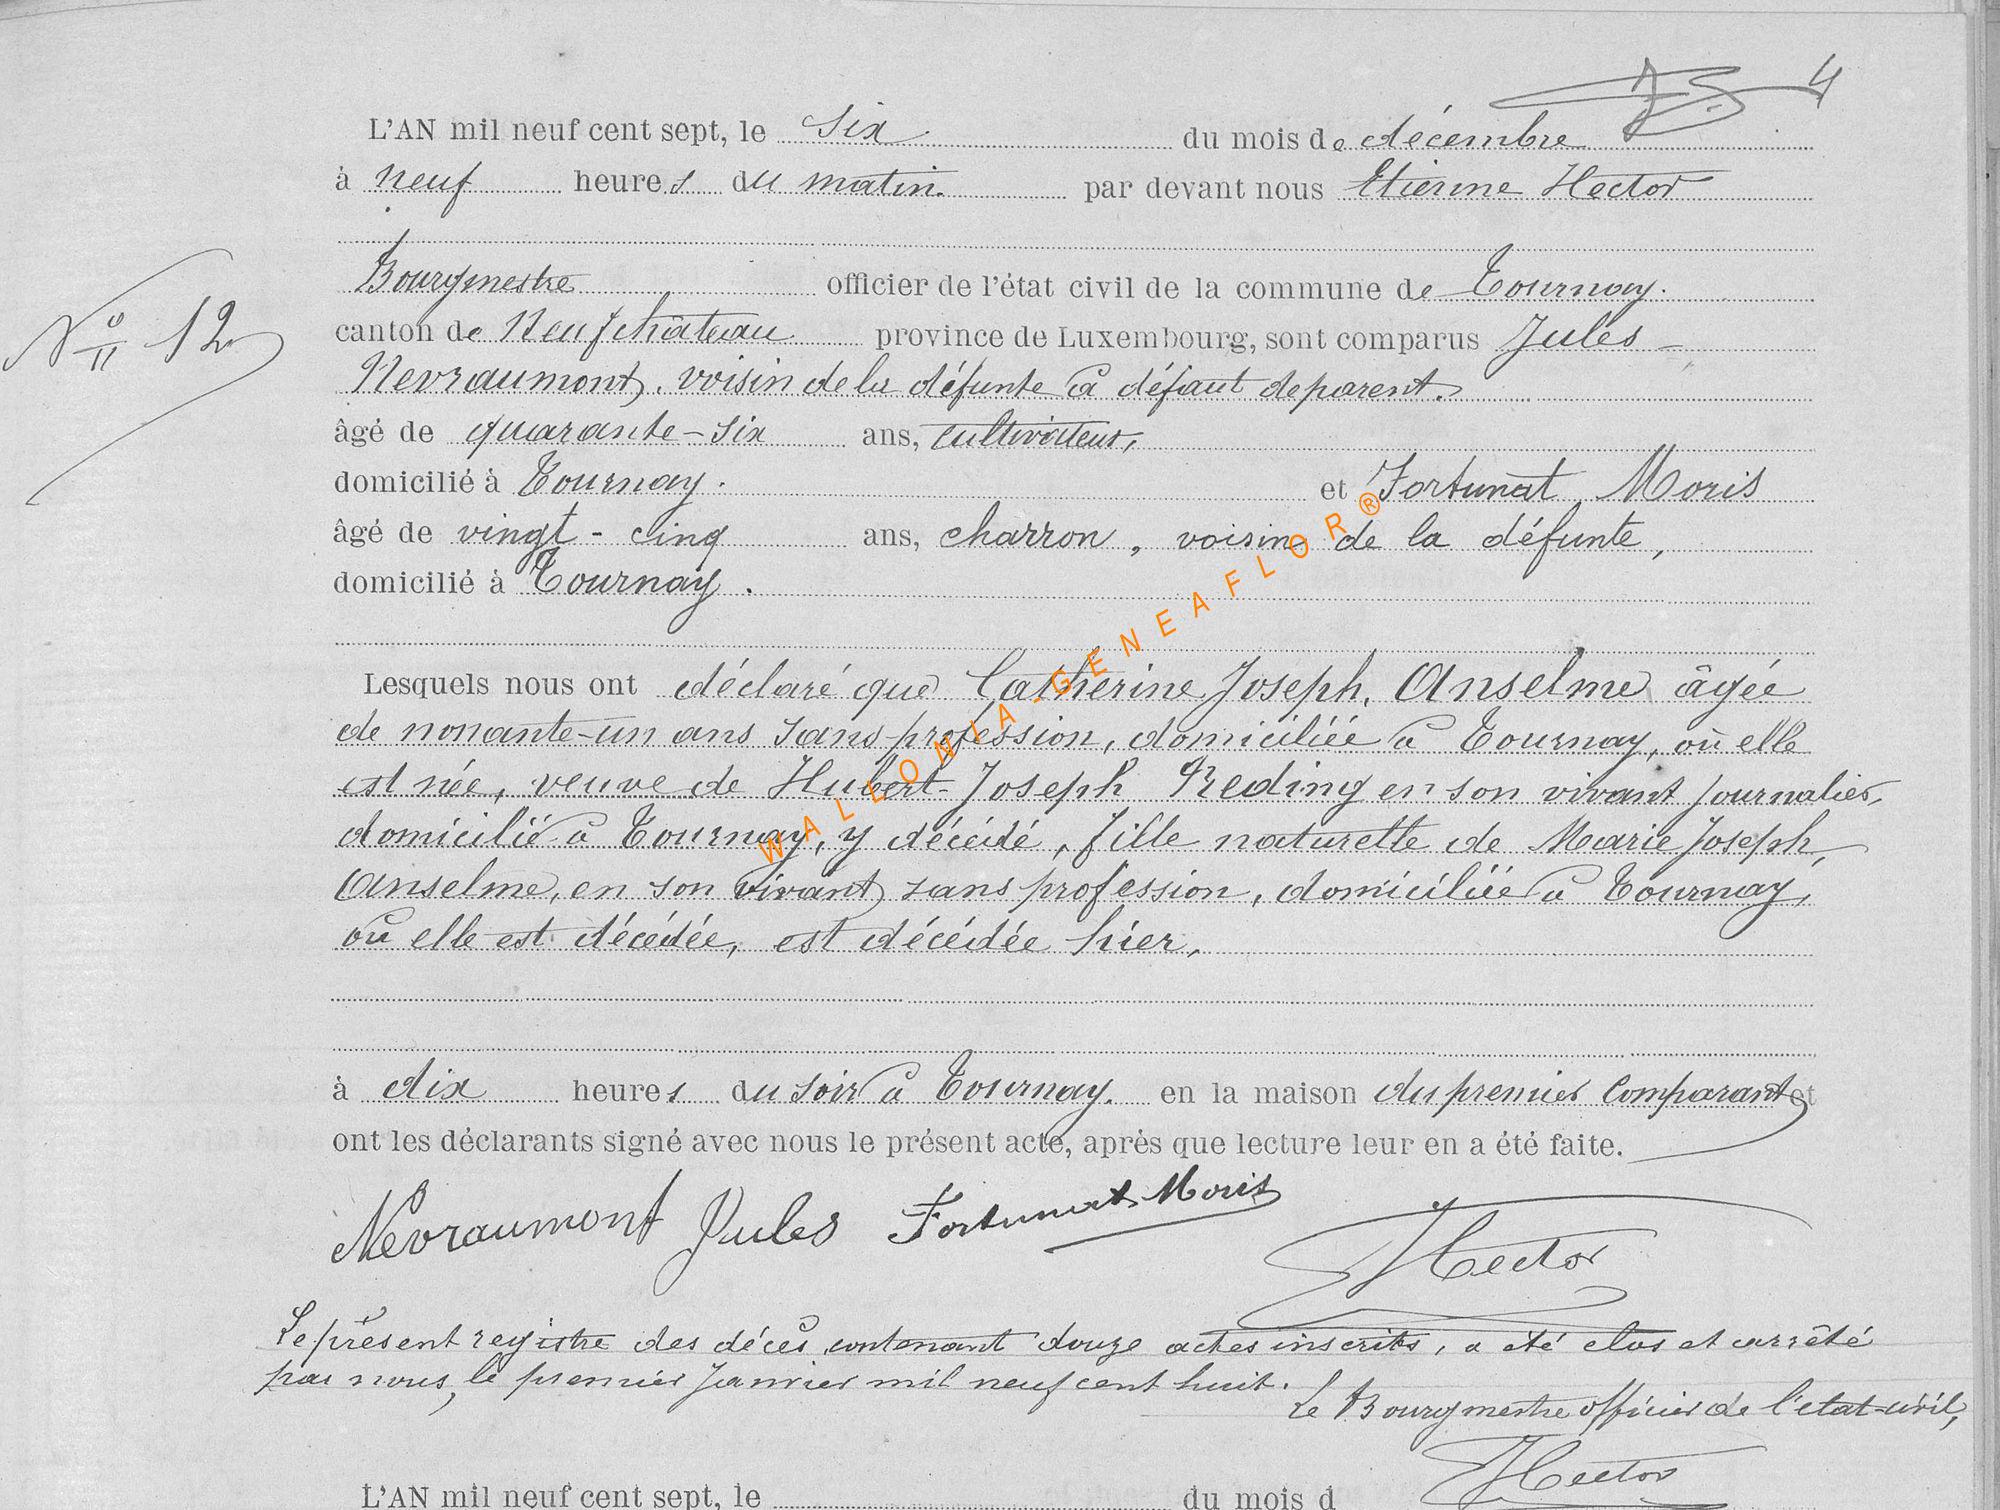 4
L'AN mil neuf cent sept, le six. du mois de décembre
à neuf heures du matin. par devant nous Etienne Hector
Bourgmestre officier de l'état civil de la commune de Tournay.
N° 12
canton de Neufchâteau province de Luxembourg, sont comparus Jules
Nevraumont, voisin de la défunte à défaut de parent.
âgé de quarante-six ans, cultivateur,
domicilié à Tournay. et Fortunat Moris
âgé de vingt-cinq ans, charron, voisin de la défunte,
domicilié à Tournay.
Lesquels nous ont déclaré que Catherine Joseph, Anselme âgée
de nonante-un ans sans profession, domiciliée à Tournay, où elle
est née, veuve de Hubert-Joseph Reding en son vivant journalier,
domicilié à Tournay, y décédé, fille naturelle de Marie Joseph,
Anselme, en son vivant sans profession, domiciliée à Tournay,
où elle est décédée, est décédée hier,
à dix heures du soir à Tournay. en la maison du premier comparant et
ont les déclarants signé avec nous le présent acte, après que lecture leur en a été faite.
Nevraumont Jules Fortunat Moris Hector
Le présent registre des décès contenant douze actes inscrits, a été clos et arrêté
par nous, le premier Janvier mil neuf cent huit.
Le Bourgmestre officier de l'état-civil,
Hector
L'AN mil neuf cent sept, le du mois d
WALLONIA-GENEAFLOR®